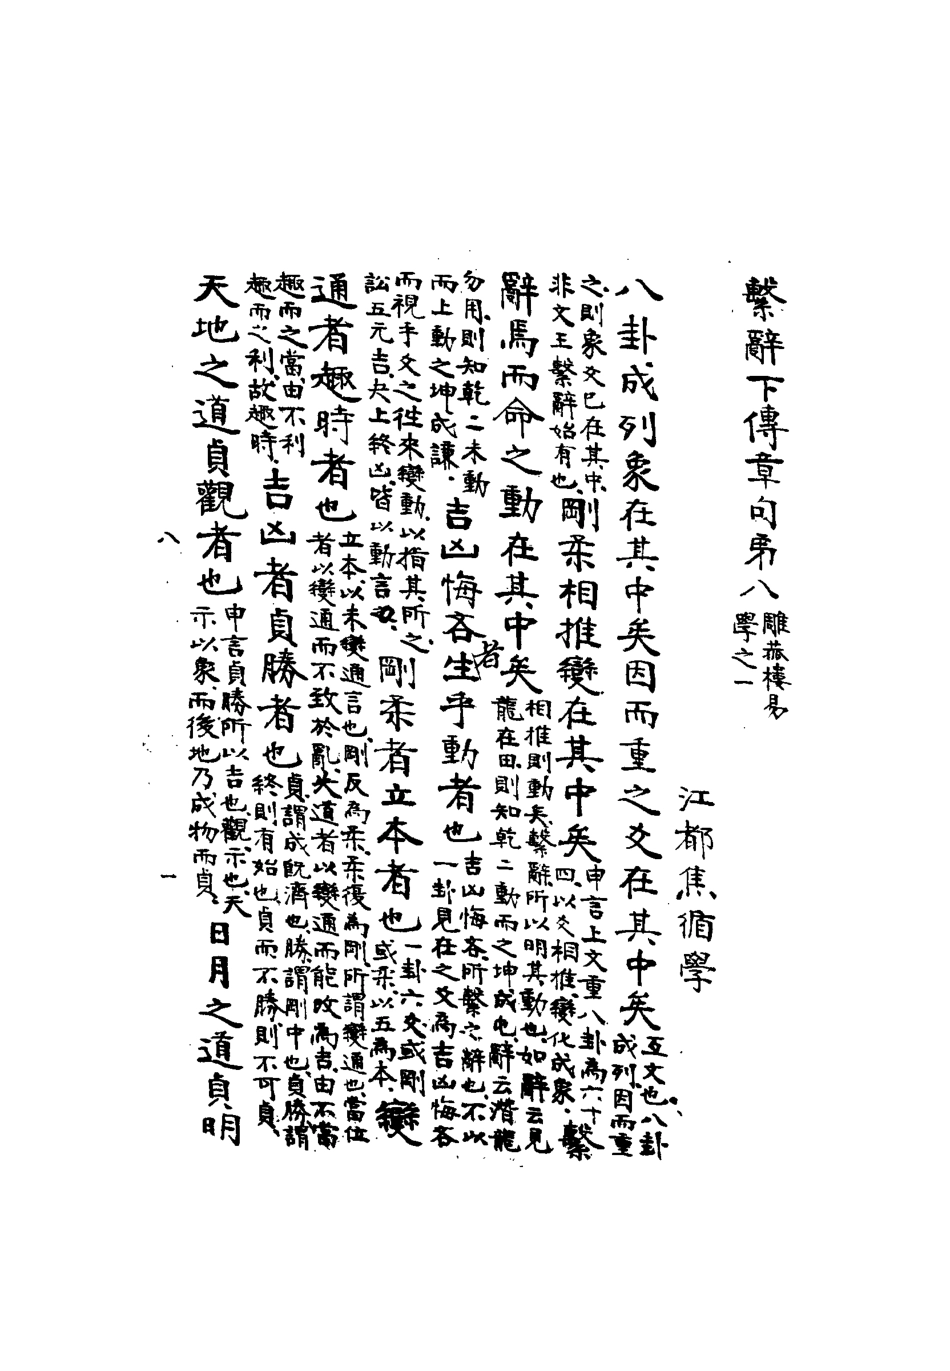 繫辭下傳章句弟八雕菰樓易學之一
江都焦循學
八卦成列象在其中矣因而重之爻在其中矣互文也八卦成列因而重
之則象爻已在其中非文王繫辭始有也剛柔相推變在其中矣申言上文重八卦爲六十四以爻相推變化成象繫
辭焉而命之動在其中矣相推則動矣繫辭所以明其動也如辭云見龍在田則知乾二動而之坤成屯辭云潛龍
勿用則知乾二未動而上動之坤成謙吉凶悔吝者生乎動者也吉凶悔吝所繫之辭也不以一卦見在之爻爲吉凶悔吝
而視乎爻之徃來變動以指其所之訟五元吉夬上終凶皆以動言剛柔者立本者也一卦六爻或剛或柔以五爲本變
通者趣時者也立本以未變通言也剛反爲柔柔復爲剛所謂變通也當位者以變通而不致於亂失道者以變通而能改爲吉由不當
趣而之當由不利趣而之利故趣時吉凶者貞勝者也貞謂成旣濟也勝謂剛中也貞勝謂終則有始也貞而不勝則不可貞
天地之道貞觀者也申言貞勝所以吉也觀示也天示以象而後地乃成物而貞日月之道貞明
八 一